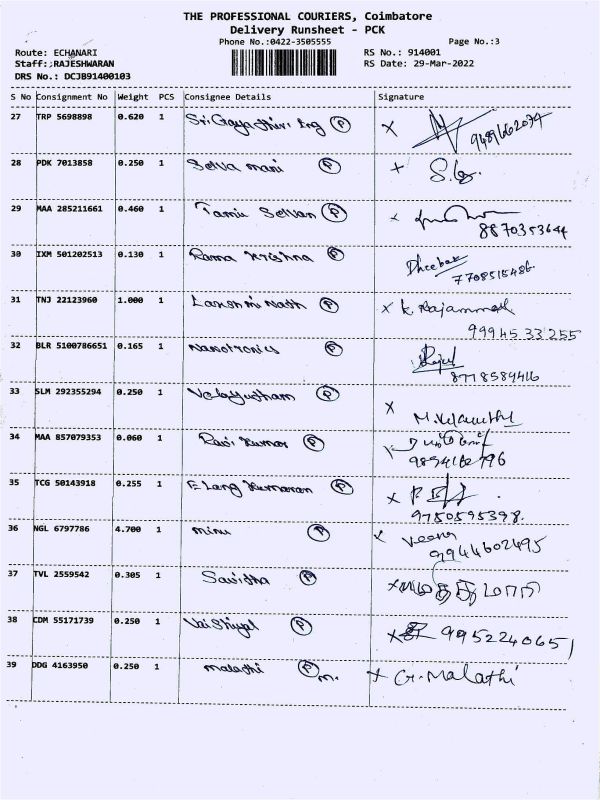 THE PROFESSIONAL COURIERS, Coimbatore
Delivery Runsheet - PCK
Phone No.:0422-3505555 Page No.:3
Route: ECHANARI RS No.: 914001
Staff:;RAJESHWARAN RS Date: 29-Mar-2022
DRS No.: DCJB91400103
S No Consignment No Weight PCS Consignee Details Signature
27 TRP 5698898 0.620 1 Sri Gayathiri Eng P X
28 PDK 7013858 0.250 1 Selva mani P
29 MAA 285211661 0.460 1 Tamil Selvan P x
8870353644
30 IXM 501202513 0.130 1 Rama Krishna P Dheebak
7708515486
31 TNJ 22123960 1.000 1 Lakshmi Nath P X K. Rajammal
99945 33 255
32 BLR 5100786651 0.165 1 Nanotronics P
33 SLM 292355294 0.250 1 Velayutham P X
34 MAA 857079353 0.060 1 Ravi Kumar P
35 TCG 50143918 0.255 1 Elang Kumaran P X
9750595398.
36 NGL 6797786 4.700 1 minu P Veena
9944602495
37 TVL 2559542 0.305 1 Savitha P
38 CDM 55171739 0.250 1 Vaishiyal P X 9952240651
39 DDG 4163950 0.250 1 malathi P m. G. Malathi